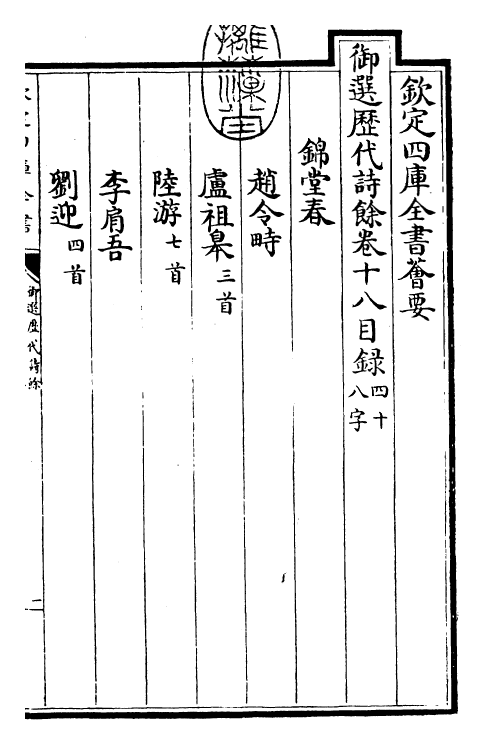 欽定四庫全書薈要
御選歷代詩餘卷十八目録四十八字
錦堂春
趙令畤
盧祖皋三首
陸游七首
李肩吾
劉迎四首
御選歷代詩餘
二